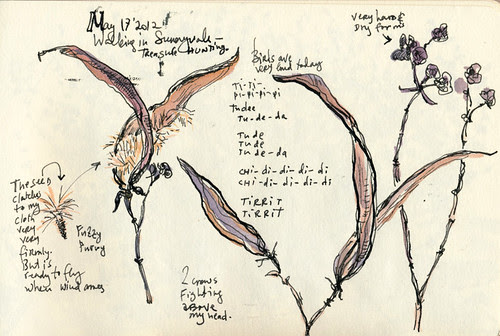 May 17 2012
Walking in Sunnyvale -
Treasure HUNTING.
Birds are
very loud today
Ti-Ti-
Pi-Pi-Pi-Pi
Tudee
Tu-de-da
Tu de
Tu de
Tu de-da
CHi-di-di-di-di
CHi-di-di-di-di
TiRRiT
TiRRiT
very hard &
Dry
The seed
clatches
to my
cloth
very
very
firmly.
But is
ready to fly
when wind
Fuzzy
Furry
2 crows
Fighting
above
my head.